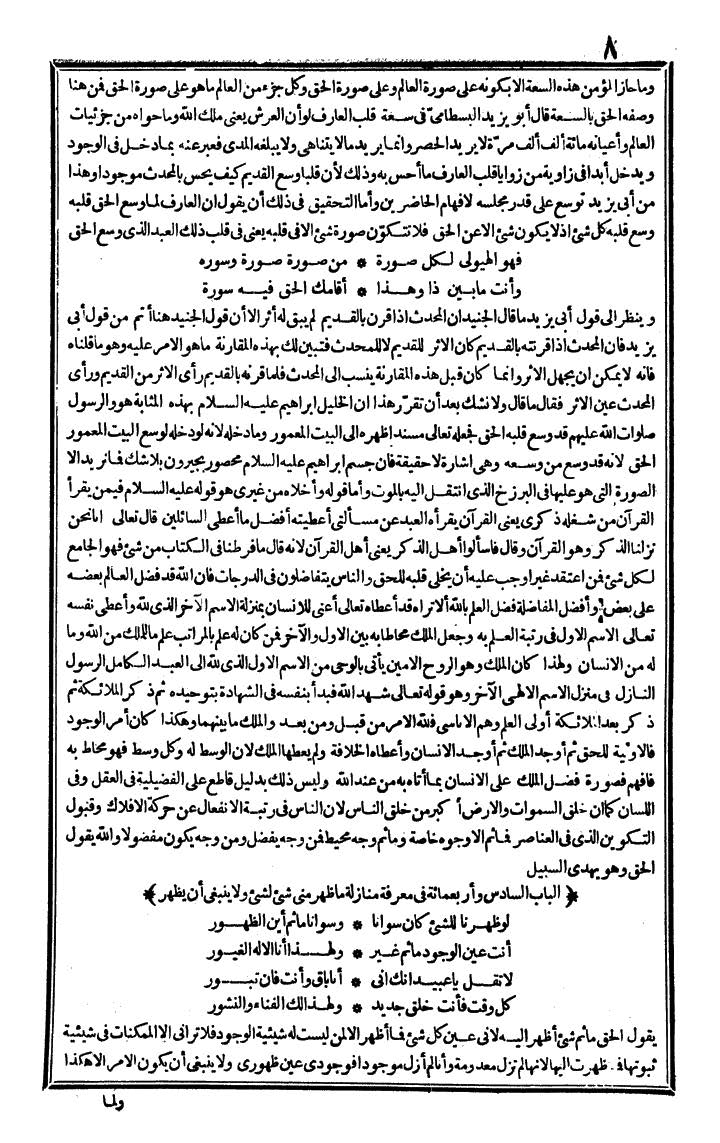 ٨
وما حاز المؤمن هذه السعة الا بكونه على صورة العالم وعلى صورة الحق وكل جزء من العالم ما هو على صورة الحق فمن هنا
وصفه الحق بالسعة قال أبو يزيد البسطامى فى سعة قلب العارف لو أن العرش يعنى ملك الله وما حواه من جزئيات
العالم وأعيانه مائة ألف ألف مرة لا يريد الحصر وانما يريد ما لا يتناهى ولا يبلغه المدى فعبر عنه بما دخل فى الوجود
ويدخل أبدا فى زاوية من زوايا قلب العارف ما أحس به وذلك لأن قلبا وسع القديم كيف يحس بالمحدث موجودا وهذا
من أبى يزيد توسع على قدر مجلسه لافهام الحاضرين وأما التحقيق فى ذلك أن يقول ان العارف لما وسع الحق قلبه
وسع قلبه كل شئ اذ لا يكون شئ الا عن الحق فلا تتكون صورة شئ الا فى قلبه يعنى فى قلب ذلك العبد الذى وسع الحق
فهو الهيولى لكل صورة * من صورة صورة وسوره
وأنت ما بين ذا وهذا * أقامك الحق فيه سورة
وينظر الى قول أبى يزيد ما قال الجنيد ان المحدث اذا قرن بالقديم لم يبق له أثر الا أن قول الجنيد هنا أتم من قول أبى
يزيد فان المحدث اذا قرنته بالقديم كان الاثر للقديم لا للمحدث فتبين لك بهذه المقارنة ما هو الامر عليه وهو ما قلناه
فانه لا يمكن ان يجهل الاثر وانما كان قبل هذه المقارنة ينسب الى المحدث فلما قرنه بالقديم رأى الاثر من القديم ورأى
المحدث عين الاثر فقال ما قال ولا نشك بعد أن تقرر هذا ان الخليل ابراهيم عليه السلام بهذه المثابة هو والرسول
صلوات الله عليهم قد وسع قلبه الحق فجعله تعالى مسندا ظهره الى البيت المعمور وما دخله لانه لو دخله لوسع البيت المعمور
الحق لانه قد وسع من وسعه وهى اشارة لا حقيقة فان جسم ابراهيم عليه السلام محصور بجيرون بلا شك فما نريد الا
الصورة التى هو عليها فى البرزخ الذى انتقل اليه بالموت وأما قوله وأخلاه من غيرى هو قوله عليه السلام فيمن يقرأ
القرآن من شغله ذكرى يعنى القرآن يقرأه العبد عن مسألتى أعطيته أفضل ما أعطى السائلين قال تعالى انا نحن
نزلنا الذكر وهو القرآن وقال فاسألوا أهل الذكر يعنى أهل القرآن لانه قال ما فرطنا فى الكتاب من شئ فهو الجامع
لكل شئ فمن اعتقد غيرا وجب عليه أن يخلى قلبه للحق والناس يتفاضلون فى الدرجات فان الله قد فضل العالم بعضه
على بعض وأفضل المفاضلة فضل العلم بالله ألا تراه قد أعطاه تعالى أعنى للانسان بمنزلة الاسم الآخر الذى لله وأعطى نفسه
تعالى الاسم الاول فى رتبة العلم به وجعل الملك محاطا به بين الاول والآخر فمن كان له علم بالمراتب علم ما للملك من الله وما
له من الانسان ولهذا كان الملك وهو الروح الامين يأتى بالوحى من الاسم الاول الذى لله الى العبد الكامل الرسول
النازل فى منزل الاسم الالهى الآخر وهو قوله تعالى شهد الله فبدأ بنفسه فى الشهادة بتوحيده ثم ذكر الملائكة ثم
ذكر بعد الملائكة أولى العلم وهم الاناسى فلله الامر من قبل ومن بعد والملك ما بينهما وهكذا كان أمر الوجود
فالاولية للحق ثم أوجد الملك ثم أوجد الانسان وأعطاه الخلافة ولم يعطها الملك لان الوسط له وكل وسط فهو محاط به
فافهم فصورة فضل الملك على الانسان بما أتاه به من عند الله وليس ذلك بدليل قاطع على الفضيلة فى العقل وفى
اللسان كما ان خلق السموات والارض أكبر من خلق الناس لان الناس فى رتبة الانفعال عن حركة الافلاك وقبول
التكوين الذى فى العناصر فما ثم الا وجوه خاصة وما ثم وجه محيط فمن وجه يفضل ومن وجه يكون مفضولا والله يقول
الحق وهو يهدى السبيل
﴿ الباب السادس وأربعمائة فى معرفة منازلة ما ظهر منى شئ لشئ ولا ينبغى أن يظهر ﴾
لو ظهرنا للشئ كان سوانا * وسوانا ما ثم أين الظهور
أنت عين الوجود ما ثم غير * ولهذا أنا الاله الغيور
لا تقل يا عبيد انك انى * أنا باق وأنت فان تبور
كل وقت فأنت خلق جديد * ولهذا لك الفناء والنشور
يقول الحق ما ثم شئ أظهر اليه لانى عين كل شئ فما أظهر الا لمن ليست له شيئية الوجود فلا ترانى الا الممكنات فى شيئية
ثبوتها فما ظهرت اليها لانها لم تزل معدومة وأنا لم أزل موجودا فوجودى عين ظهورى ولا ينبغى أن يكون الامر الا هكذا
ولما